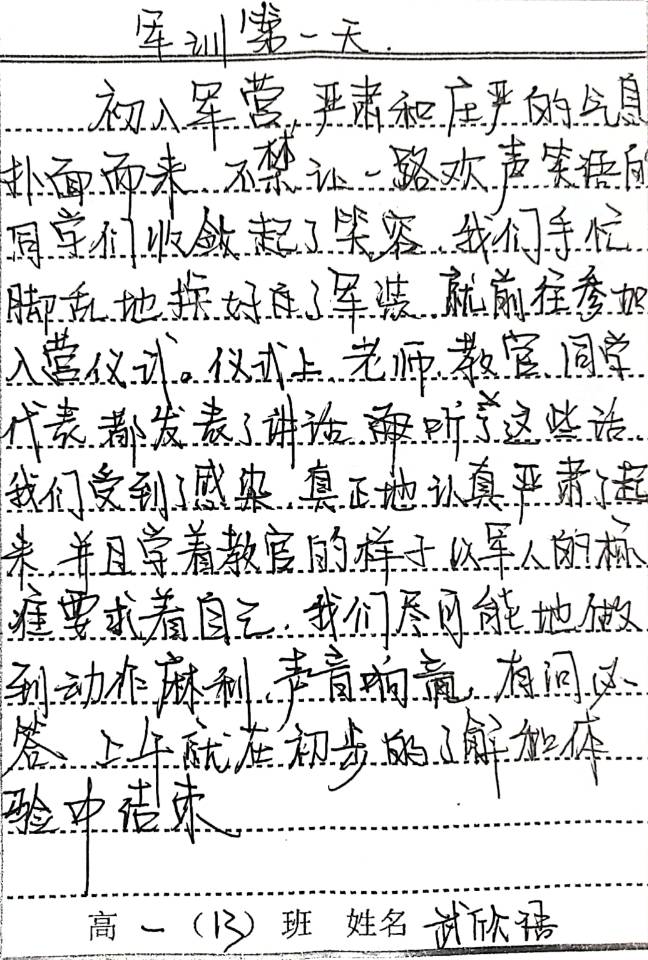 军训第一天.
初入军营,严肃和庄严的气息
扑面而来,不禁让一路欢声笑语的
同学们收敛起了笑容,我们手忙
脚乱地换好了军装,就前往参加
入营仪式。仪式上,老师,教官,同学
代表都发表了讲话,听了这些话,
我们受到了感染,真正地认真严肃了起
来,并且学着教官的样子,以军人的标
准要求着自己,我们尽可能地做
到动作麻利,声音响亮,有问必
答,上午就在初步的了解和体
验中结束,
高一(13)班 姓名 武欣语